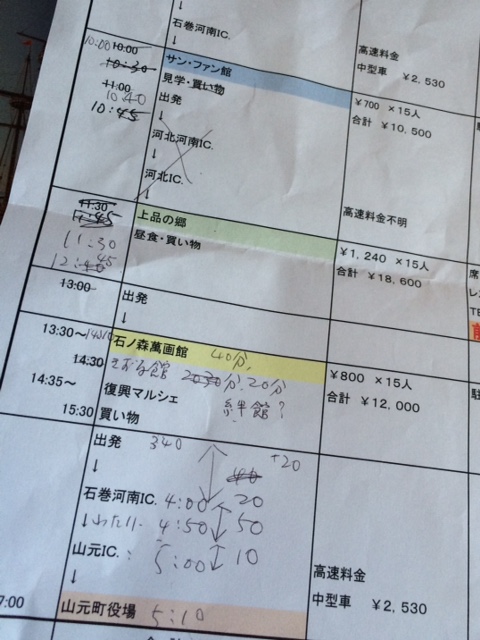 ↓
石巻河南IC.
高速料金
中型車 ¥2,530
10:00 10:00
10:30
サン・ファン館
見学・買い物
¥700 ×15人
合計 ¥10,500
11:00
10:40
10:45
出発
↓
河北河南IC.
↓
河北IC.
↓
高速料金不明
11:30
11:45
上品の郷
昼食・買い物
¥1,240 ×15人
合計 ¥18,600
席
レ
TE
11:30
12:40 45
13:00
出発
↓
13:30~
石ノ森萬画館 40分,
¥800 ×15人
合計 ¥12,000
駐
14:30
館 20 30分, 20分
14:35~
復興マルシェ 絆館?
15:30
買い物
出発 340
+20
↓
40
石巻河南IC. 4:00 20
↓わたり 4:50 50
山元IC. : 5:00 10
↓
高速料金
中型車 ¥2,530
7:00
山元町役場 5:10